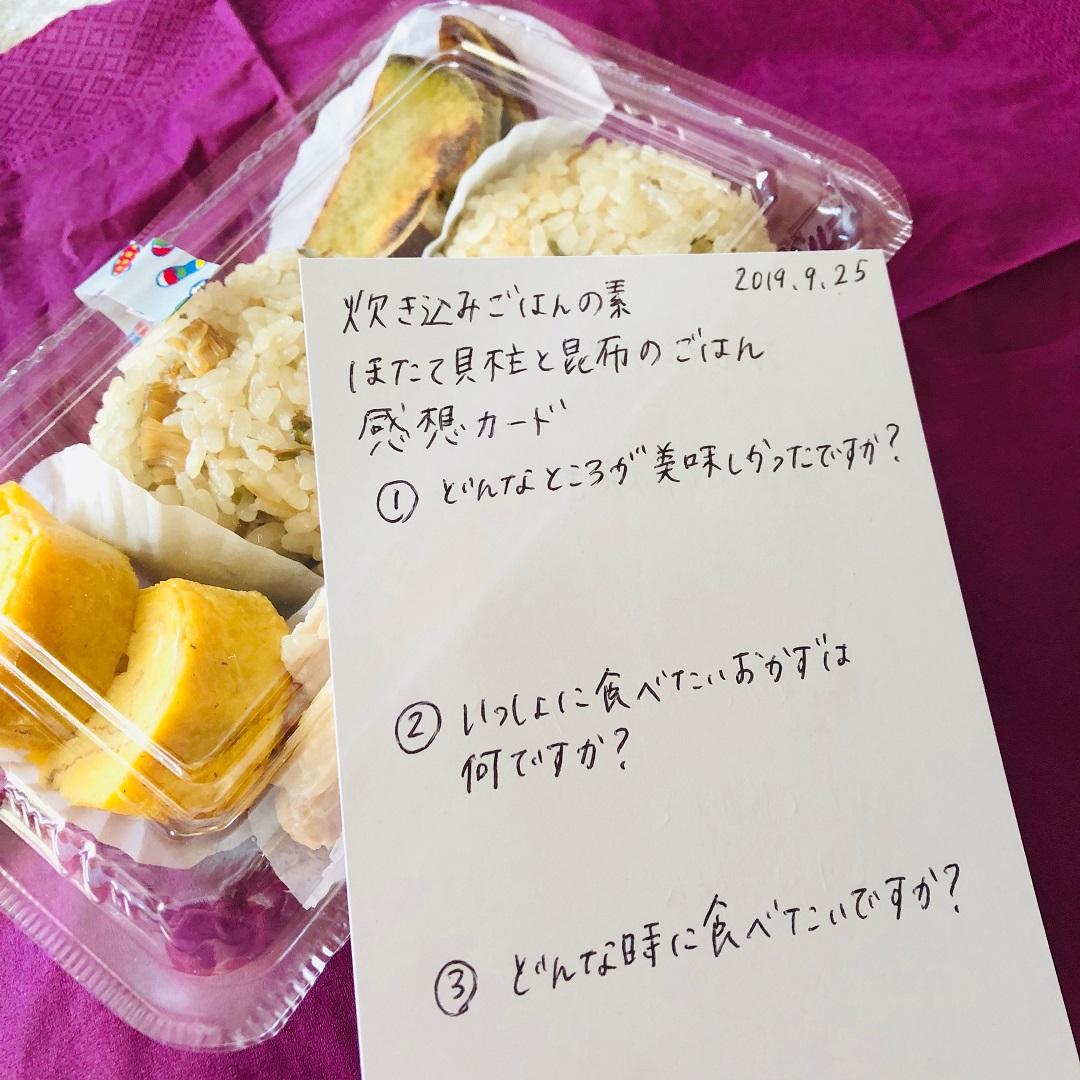 2019.9.25
炊き込みごはんの素
ほたて貝柱と昆布のごはん
感想カード
① どんなところが美味しかったですか?
② いっしょに食べたいおかずは
何ですか?
③ どんな時に食べたいですか?